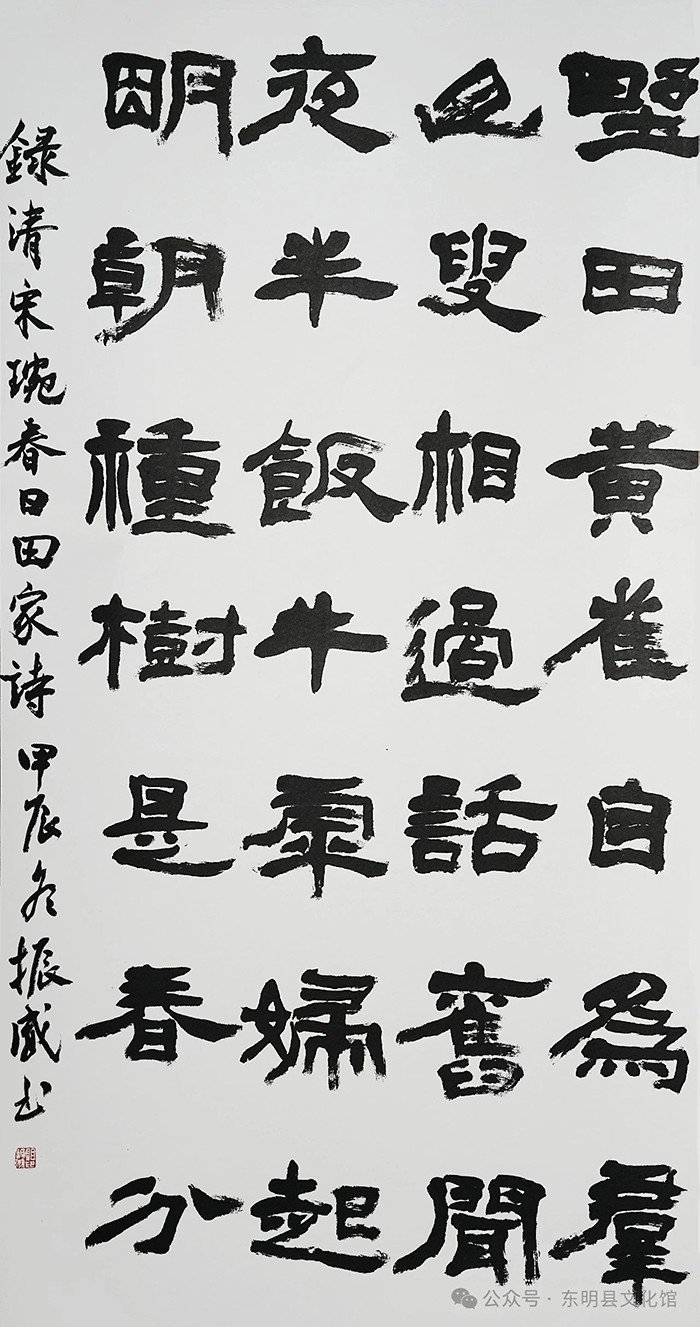 野田黄雀自為羣
山叟相過話舊聞
夜半飯牛虖婦起
明朝種樹是春分
録清宋琬春日田家詩甲辰冬振威书
公众号·东明县文化馆